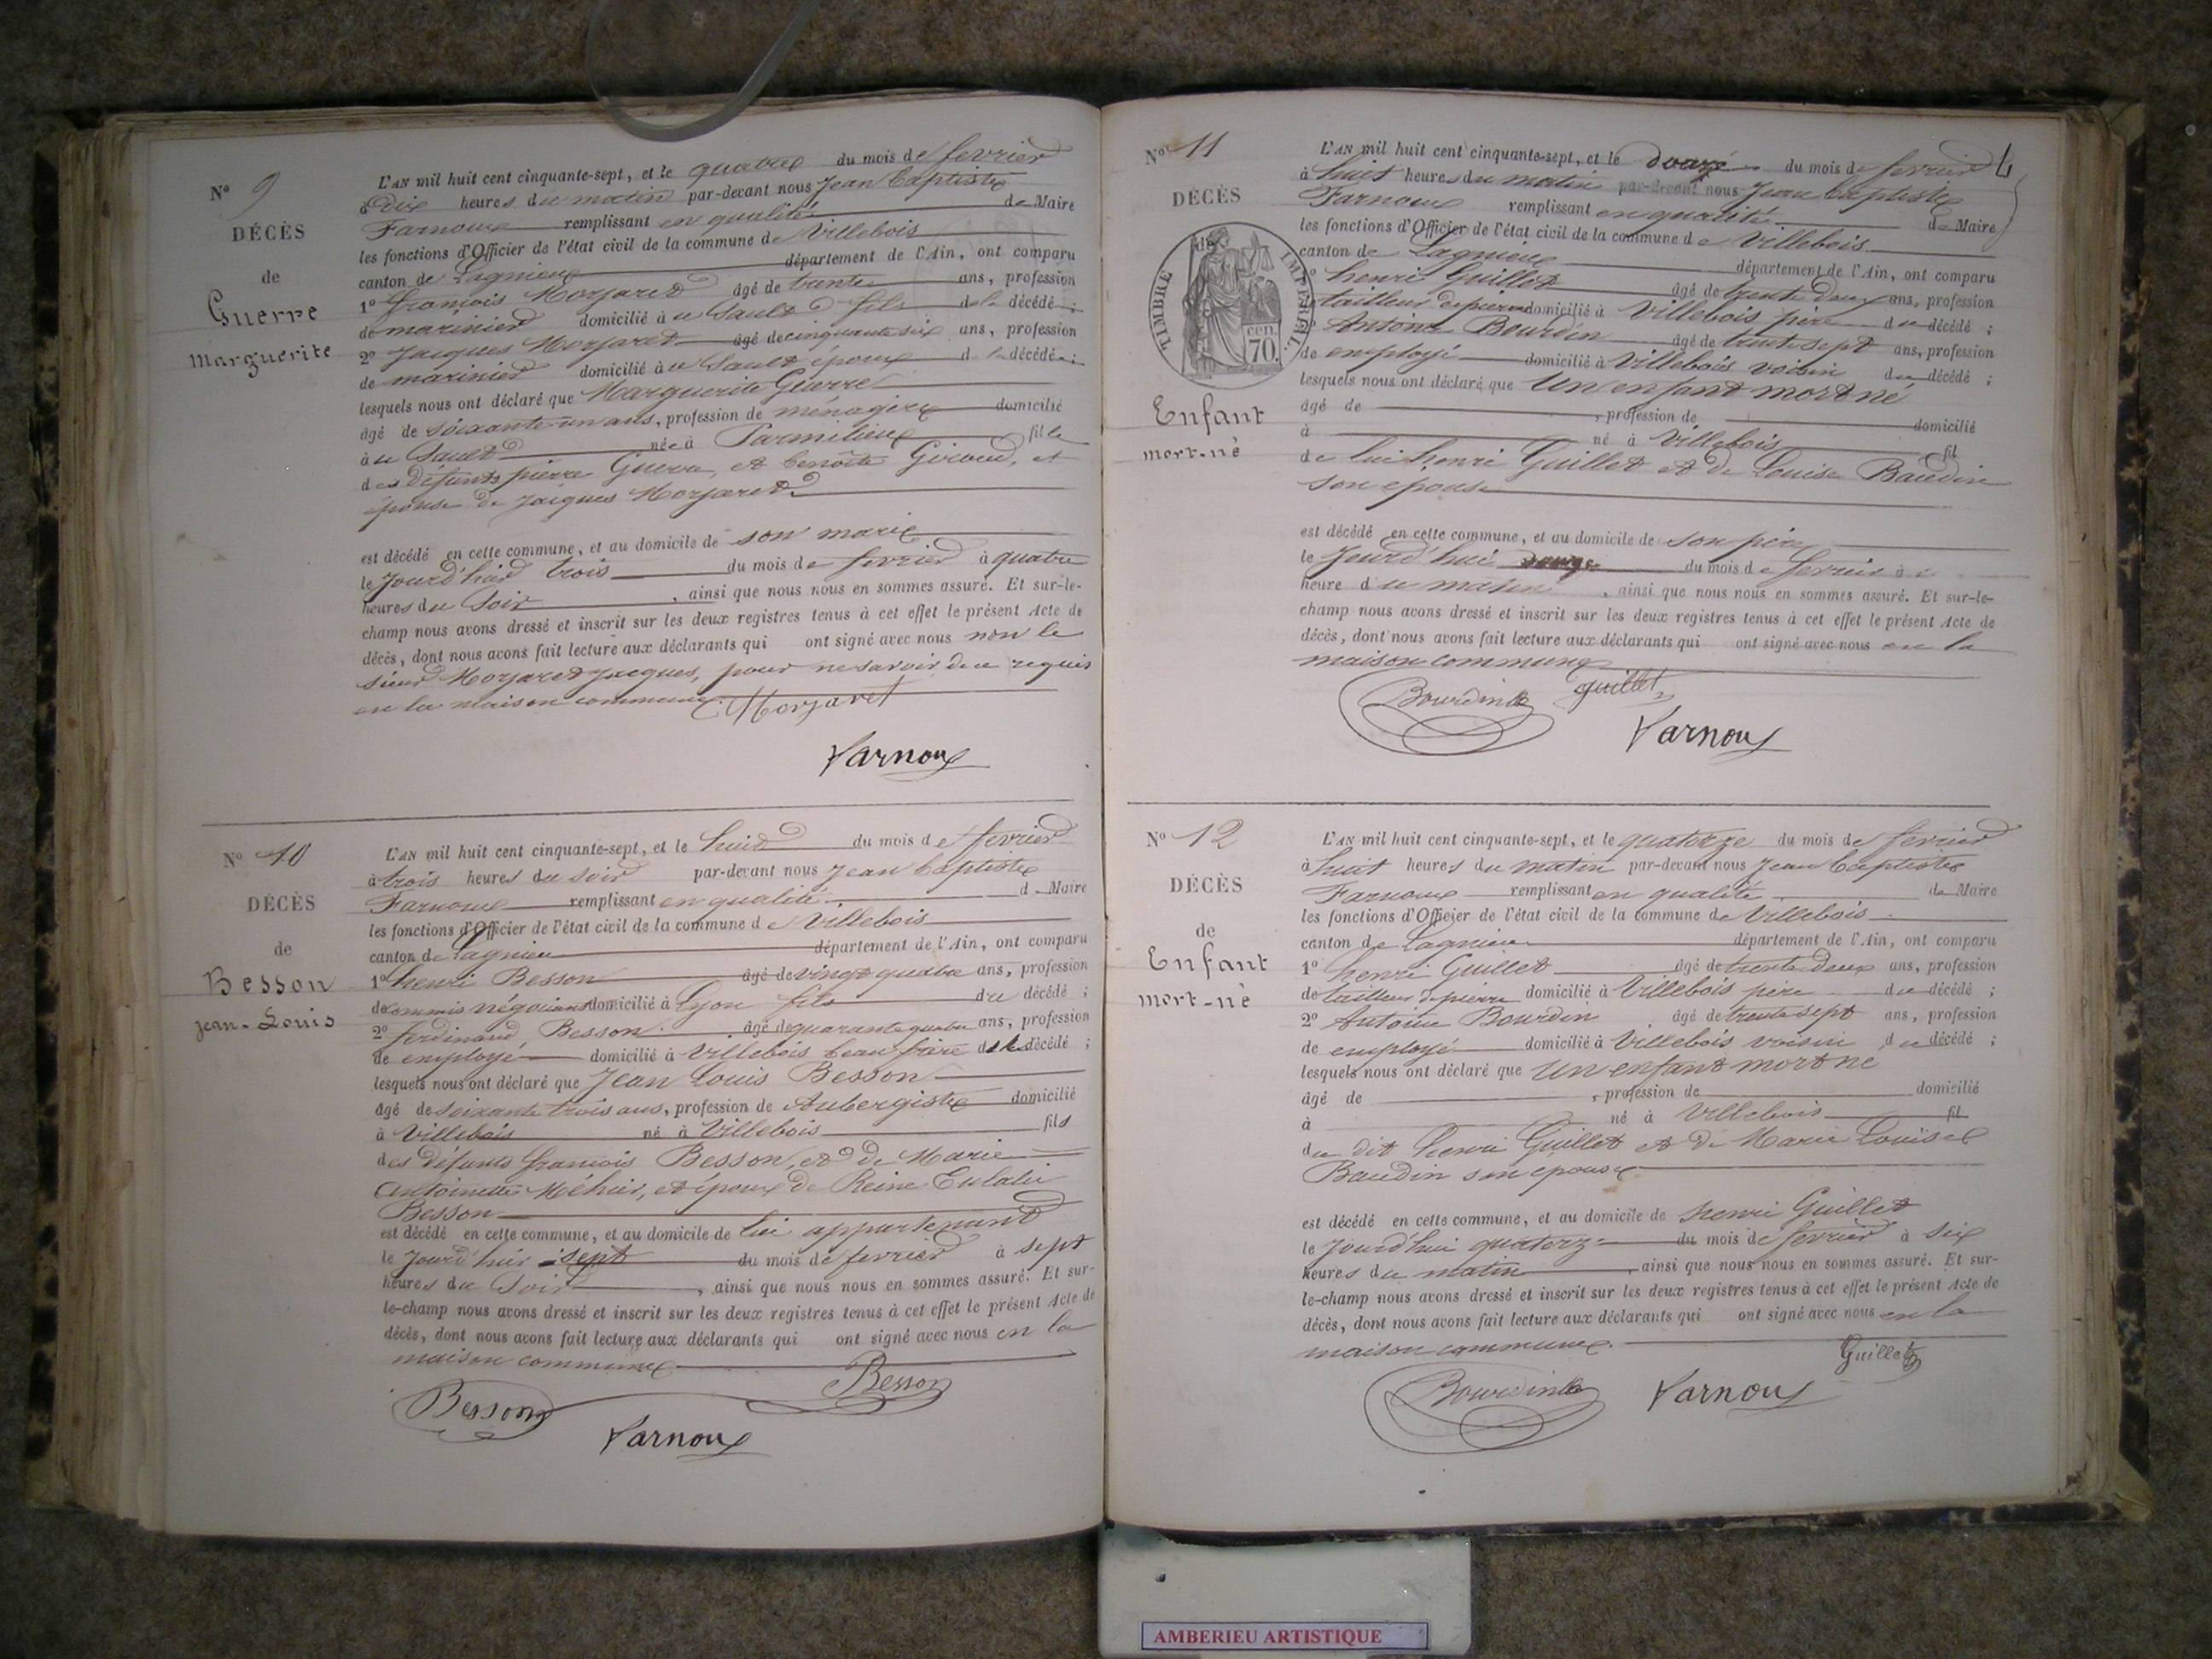 N° 9
DÉCÈS
de
Guerre
Marguerite
L'AN mil huit cent cinquante-sept, et le quatre du mois de fevrier
à Dix heures du matin par-devant nous Jean Baptiste
Farnoux remplissant en qualité de Maire
les fonctions d'Officier de l'état civil de la commune de Villebois
canton de Lagnieu département de l'Ain, ont comparu
1° françois Morjaret âgé de trente ans, profession
de marinier domicilié à u Sault fils de la décédée ;
2° Jacques Morjaret âgé de cinquante six ans, profession
de marinier domicilié à u Sault époux de la décédée ;
lesquels nous ont déclaré que Marguerite Gierre
âgé de soixante un ans, profession de ménagère domicilié
à u Sault née à Parmilieu fille
des défunts pierre Guerre, et benoîte Giroud, et
épouse de Jacques Morjaret
est décédé en cette commune, et au domicile de son marie
le Jourd'hier trois du mois de fevrier à quatre
heures du Soir, ainsi que nous nous en sommes assuré. Et sur-le-
champ nous avons dressé et inscrit sur les deux registres tenus à cet effet le présent Acte de
décès, dont nous avons fait lecture aux déclarants qui ont signé avec nous non le
sieur Morjaret Jacques, pour ne savoir de ce requis
en la maison commune. Morjaret
Farnoux
N° 10
DÉCÈS
de
Besson
jean-Louis
L'AN mil huit cent cinquante-sept, et le huit du mois de fevrier
à trois heures du soir par-devant nous Jean Baptiste
Farnoux remplissant en qualité de Maire
les fonctions d'Officier de l'état civil de la commune de Villebois
canton de Lagnieu département de l'Ain, ont comparu
1° henri Besson âgé de vingt quatre ans, profession
de commis négociant domicilié à Lyon fils du décédé ;
2° ferdinand, Besson âgé de quarante quatre ans, profession
de employé domicilié à Villebois beau frère de décédé ;
lesquels nous ont déclaré que Jean Louis Besson
âgé de soixante trois ans, profession de Aubergiste domicilié
à Villebois né à Villebois fils
des défunts françois Besson, et de Marie
Antoinette Méhier, et époux de Reine Eulalie
Besson
est décédé en cette commune, et au domicile de lui appartenant
le Jourd'hier sept du mois de fevrier à sept
heures du Soir, ainsi que nous nous en sommes assuré. Et sur-
le-champ nous avons dressé et inscrit sur les deux registres tenus à cet effet le présent Acte de
décès, dont nous avons fait lecture aux déclarants qui ont signé avec nous en la
maison commune
Besson
Besson
Farnoux
N° 11
DÉCÈS
de
TIMBRE IMPÉRIAL.
cen. 70.
Enfant
mort-né
L'AN mil huit cent cinquante-sept, et le douze du mois de fevrier
à huit heures du matin par-devant nous Jean Baptiste
Farnoux remplissant en qualité de Maire
les fonctions d'Officier de l'état civil de la commune de Villebois
canton de Lagnieu département de l'Ain, ont comparu
1° henri Guillet âgé de trente deux ans, profession
de tailleur de pierre domicilié à Villebois père du décédé ;
2° Antoine Bourdin âgé de trente sept ans, profession
de employé domicilié à Villebois voisin du décédé ;
lesquels nous ont déclaré que Un enfant mort né
âgé de , profession de domicilié
à né à Villebois fil
de lui henri Guillet et de Louise Baudin
son épouse
est décédé en cette commune, et au domicile de son père
le Jourd'hui douze du mois de fevrier à
heure du matin, ainsi que nous nous en sommes assuré. Et sur-le-
champ nous avons dressé et inscrit sur les deux registres tenus à cet effet le présent Acte de
décès, dont nous avons fait lecture aux déclarants qui ont signé avec nous en la
maison commune
Bourdin guillet
Farnoux
N° 12
DÉCÈS
de
Enfant
mort-né
L'AN mil huit cent cinquante-sept, et le quatorze du mois de fevrier
à huit heures du matin par-devant nous Jean Baptiste
Farnoux remplissant en qualité de Maire
les fonctions d'Officier de l'état civil de la commune de Villebois
canton de Lagnieu département de l'Ain, ont comparu
1° henri Guillet âgé de trente deux ans, profession
de tailleur de pierre domicilié à Villebois père du décédé ;
2° Antoine Bourdin âgé de trente sept ans, profession
de employé domicilié à Villebois voisin du décédé ;
lesquels nous ont déclaré que Un enfant mort né
âgé de , profession de domicilié
à né à Villebois fil
du dit henri Guillet et de Marie Louise
Baudin son épouse
est décédé en cette commune, et au domicile de henri Guillet
le Jourd'hui quatorze du mois de fevrier à six
heures du matin, ainsi que nous nous en sommes assuré. Et sur-
le-champ nous avons dressé et inscrit sur les deux registres tenus à cet effet le présent Acte de
décès, dont nous avons fait lecture aux déclarants qui ont signé avec nous en la
maison commune.
Guillet
Bourdin Farnoux
AMBERIEU ARTISTIQUE